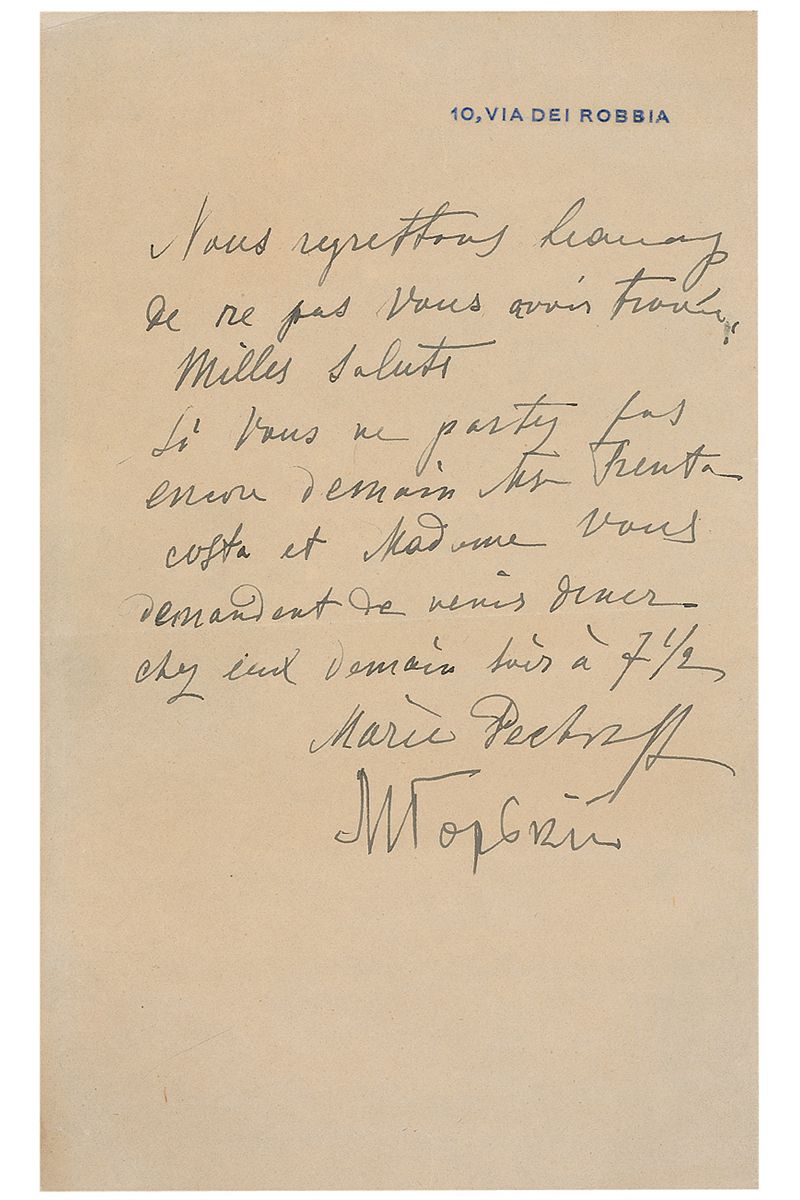 10, VIA DEI ROBBIA
Nous regrettons beaucoup
de ne pas Vous avoir trouvée
Milles Saluts
Si Vous ne party pas
encore demain Mr Trenta
costa et Madame Vous
demandent de venir diner
chez eux demain soir à 7 1/2
Marie Pechkoff
М Горький